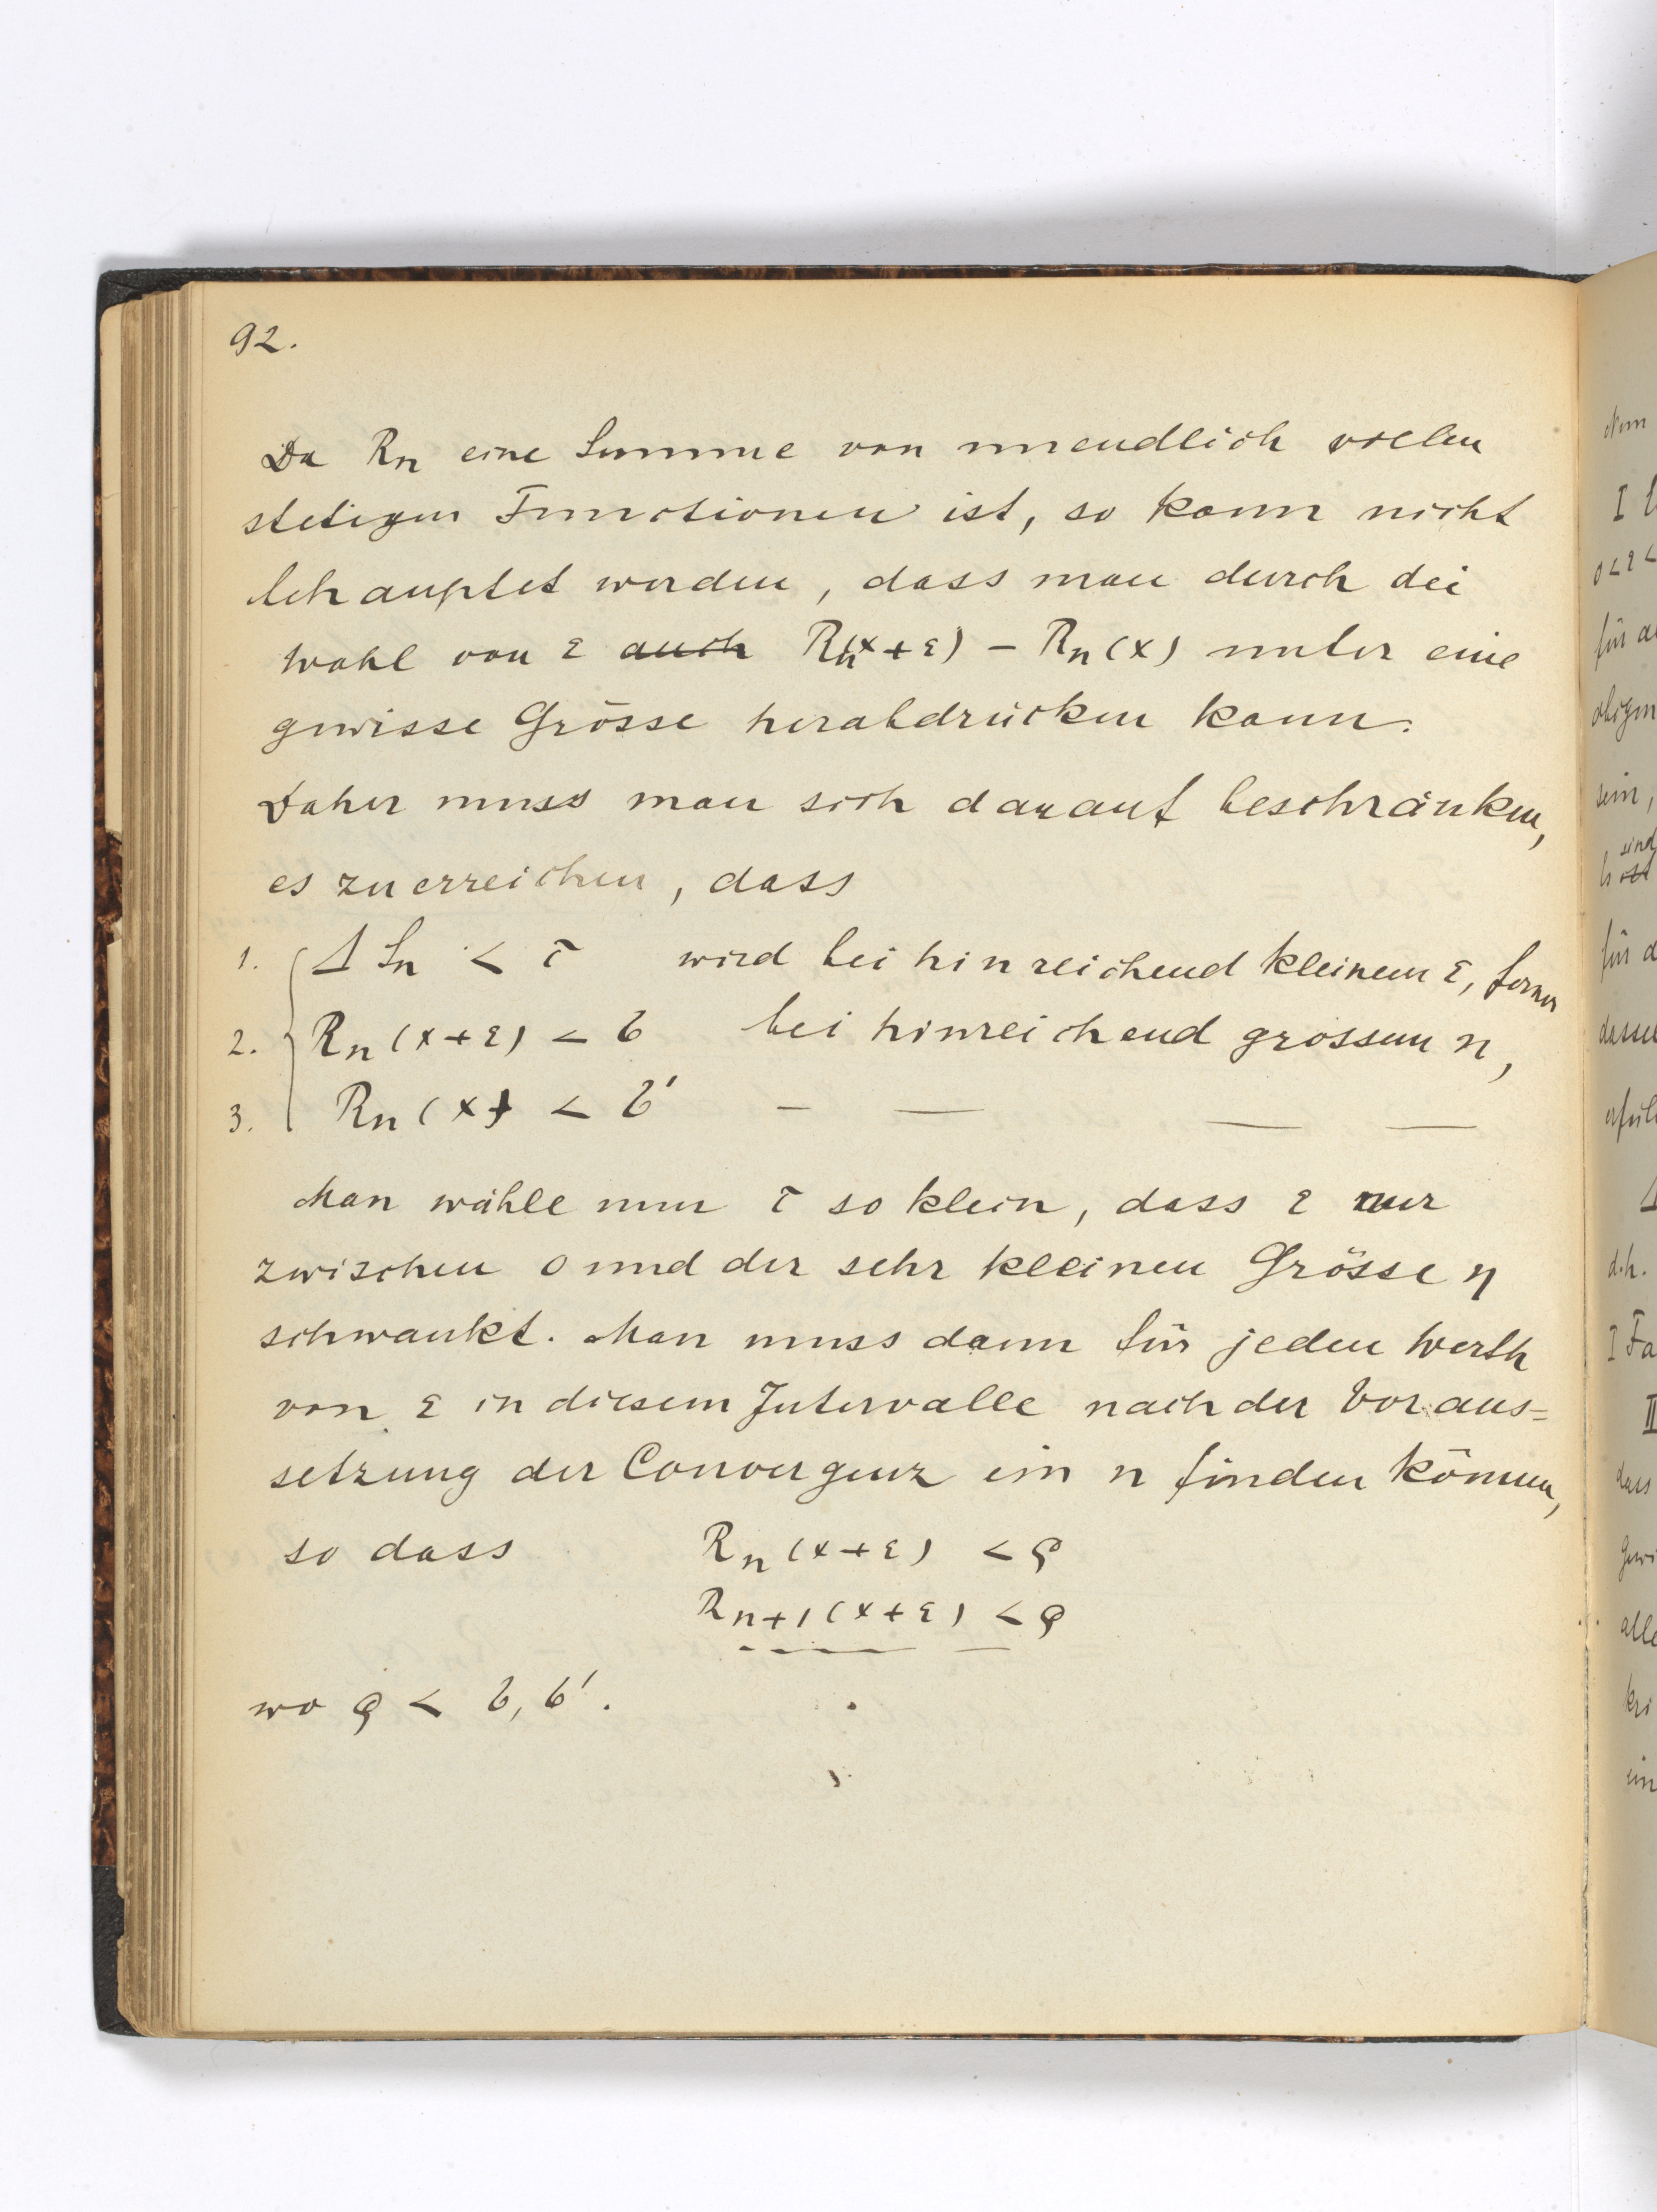 92.
Da Rn eine Summe von unendlich vielen
stetigen Functionen ist, so kann nicht
behauptet werden, dass man durch die
Wahl von ε auch Rn(x+ε) – Rn(x) unter eine
gewisse Grösse herabdrücken kann.
Daher muss man sich darauf beschränken,
es zu erreichen, dass
1. Δ Sn < τ wird bei hinreichend kleinem ε, ferner
2. Rn(x+ε) < σ bei hinreichend grossem n,
3. Rn(x) < σ' – — — —
Man wähle nun τ so klein, dass ε nur
zwischen 0 und der sehr kleinen Grösse η
schwankt. Man muss dann für jeden Werth
von ε in diesem Intervalle nach der Voraus=
setzung der Convergenz ein n finden können,
so dass Rn(x+ε) < ρ
Rn+1(x+ε) < ρ
- — — —
wo ρ < σ, σ'.